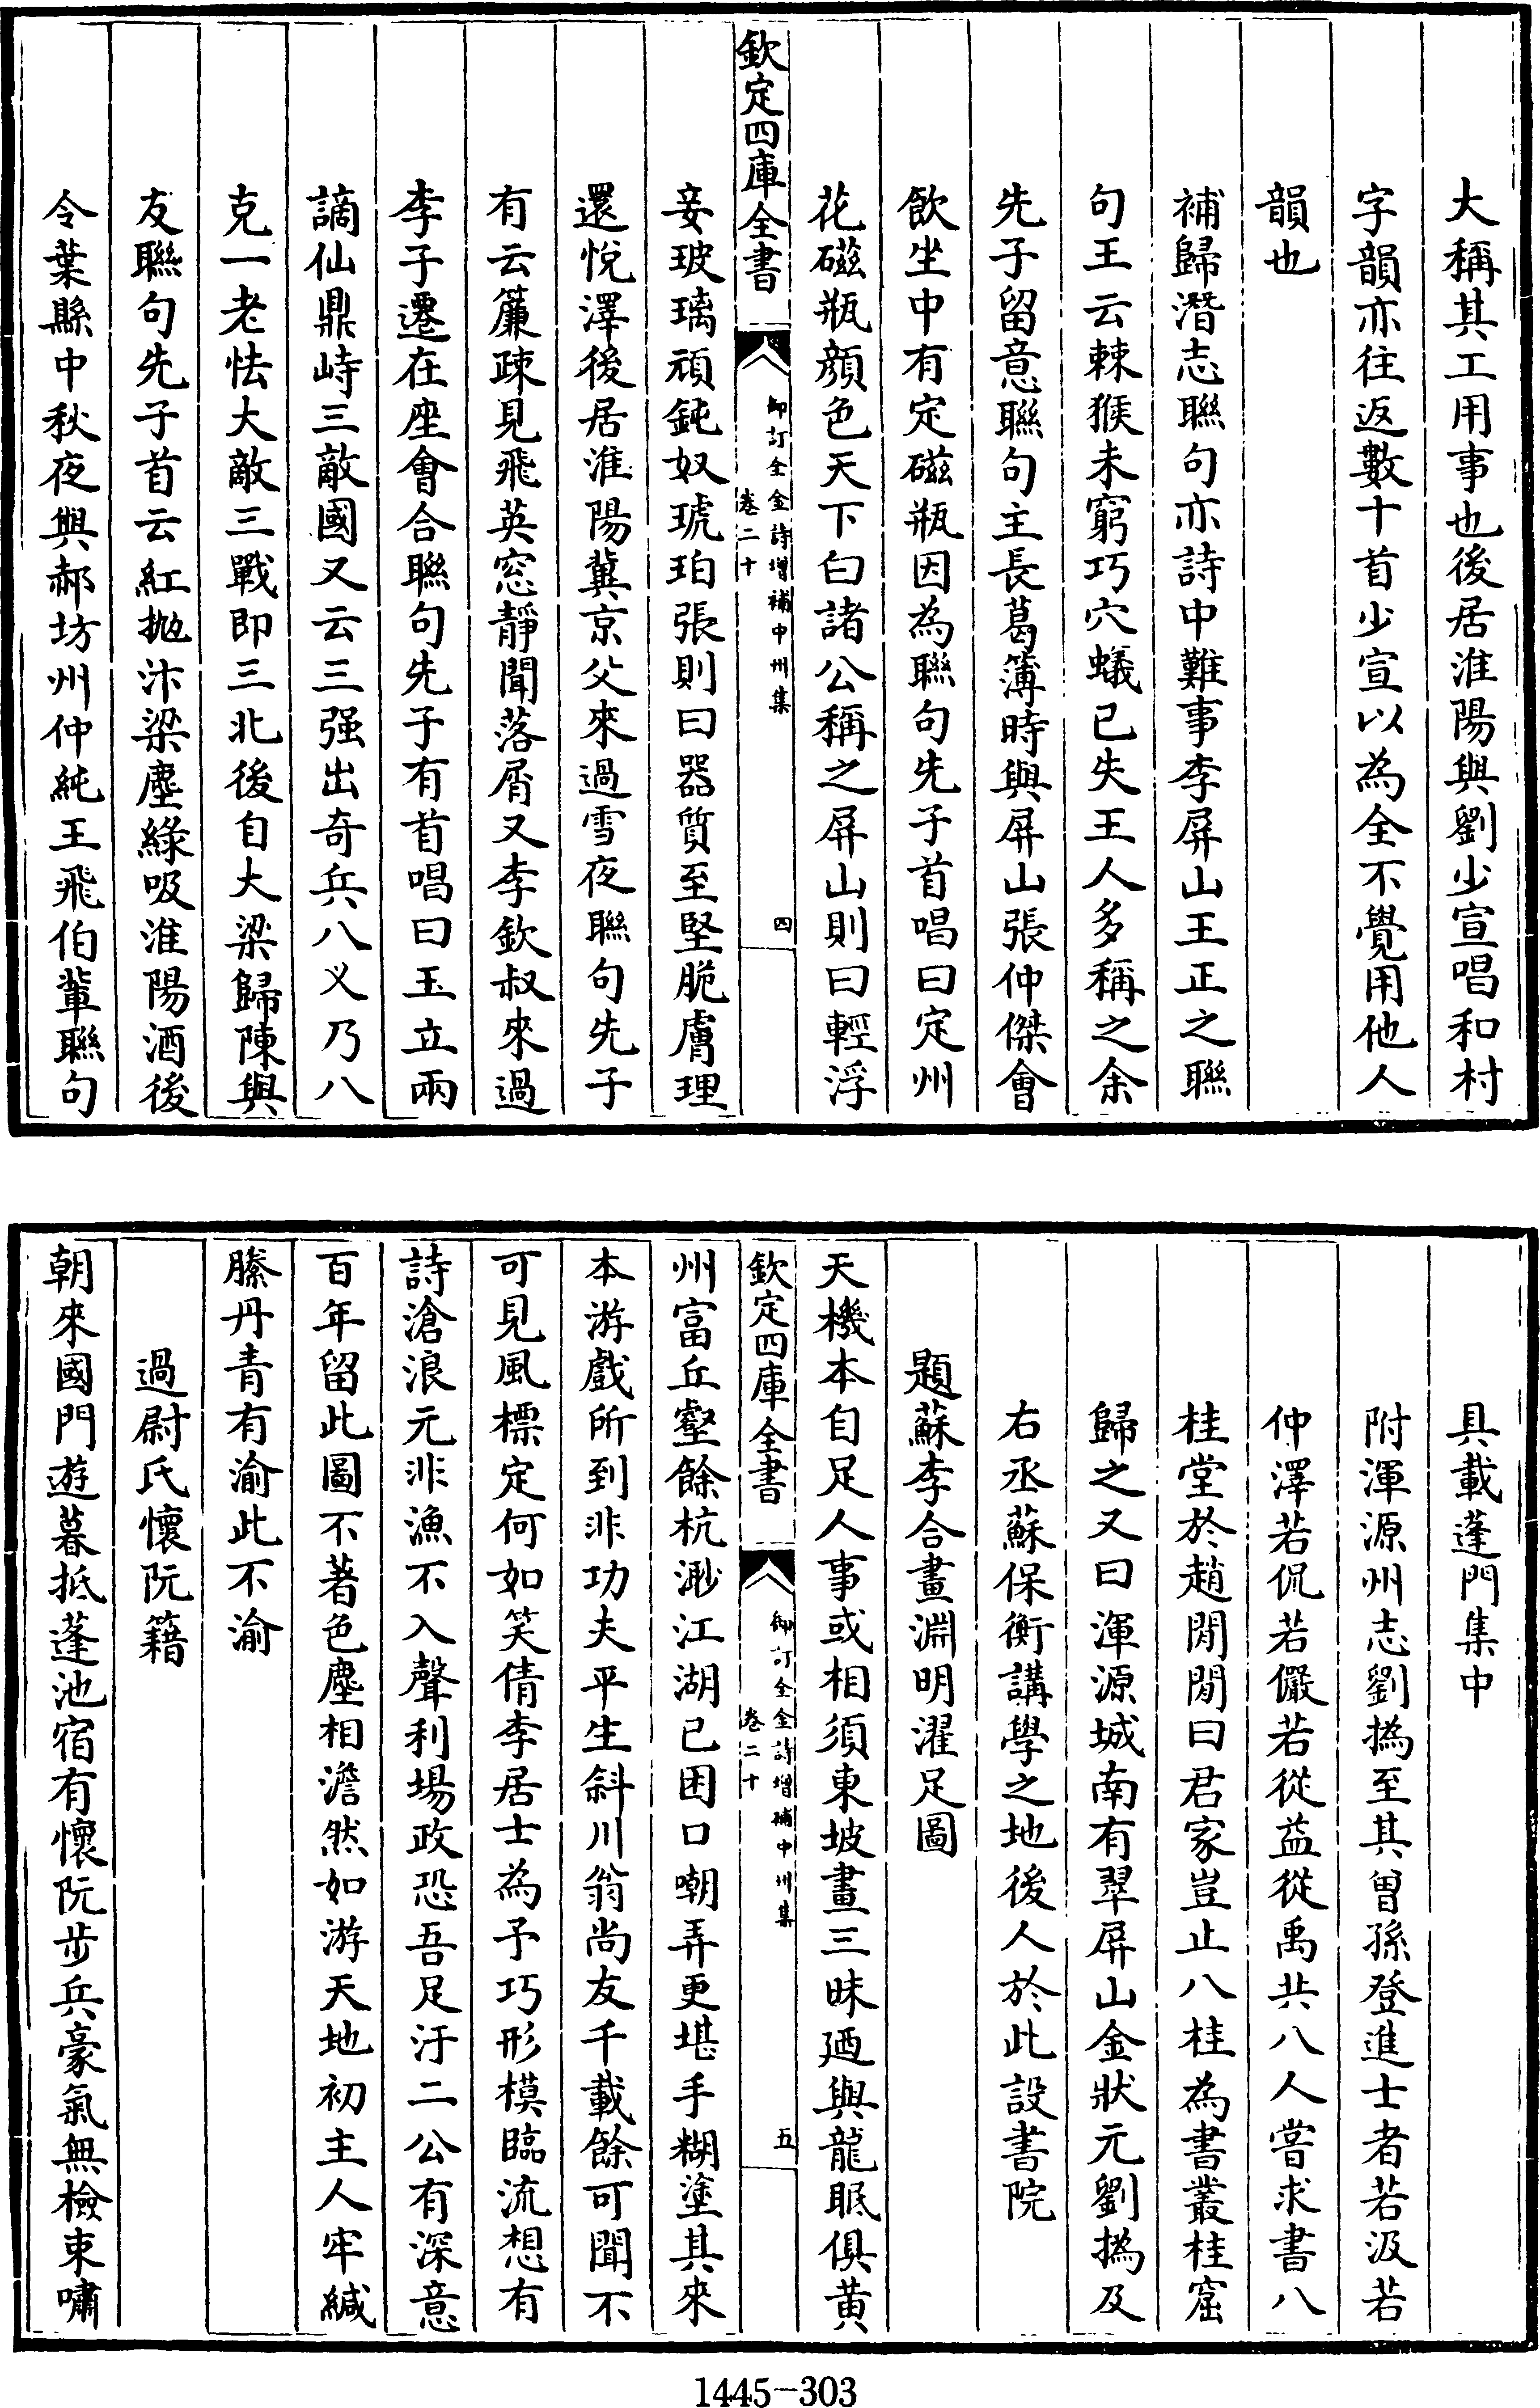 大稱其工用事也後居淮陽與劉少宣唱和村
字韻亦往返數十首少宣以為全不覺用他人
韻也
補歸潛志聯句亦詩中難事李屏山王正之聯
句王云棘猴未窮巧穴蟻已失王人多稱之余
先子留意聯句主長葛簿時與屏山張仲傑會
飲坐中有定磁瓶因為聯句先子首唱曰定州
花磁瓶顔色天下白諸公稱之屏山則曰輕浮
欽定四庫全書
御訂全金詩增補中州集
卷二十
四
妾玻璃頑鈍奴琥珀張則曰器質至堅脆膚理
還悅澤後居淮陽冀京父來過雪夜聯句先子
有云簾疎見飛英窓靜聞落屑又李欽叔來過
李子遷在座會合聯句先子有首唱曰玉立兩
謫仙鼎峙三敵國又云三强出奇兵八乂乃八
克一老怯大敵三戰即三北後自大梁歸陳與
友聯句先子首云紅抛汴梁塵綠吸淮陽酒後
令葉縣中秋夜與郝坊州仲純王飛伯輩聯句
具載蓬門集中
附渾源州志劉撝至其曾孫登進士者若汲若
仲澤若侃若儼若從益從禹共八人嘗求書八
桂堂於趙閒閒曰君家豈止八桂為書叢桂窟
歸之又曰渾源城南有翠屏山金狀元劉撝及
右丞蘇保衡講學之地後人於此設書院
題蘇李合畫淵明濯足圖
天機本自足人事或相須東坡畫三昧廼與龍眠俱黄
欽定四庫全書
御訂全金詩增補中州集
卷二十
五
州富丘壑餘杭渺江湖已困口嘲弄更堪手糊塗其來
本游戲所到非功夫平生斜川翁尚友千載餘可聞不
可見風標定何如笑倩李居士為予巧形模臨流想有
詩滄浪元非漁不入聲利場政恐吾足汙二公有深意
百年留此圖不著色塵相澹然如游天地初主人牢緘
縢丹青有渝此不渝
過尉氏懷阮籍
朝來國門遊暮抵蓬池宿有懷阮步兵豪氣無檢束嘯
1445-303